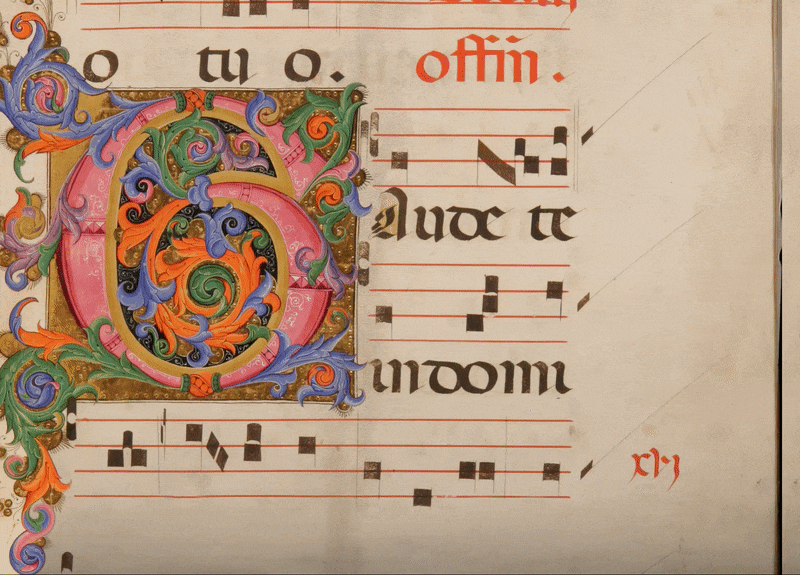 o tu o.
offiń.
GAude te
in domi
xvj